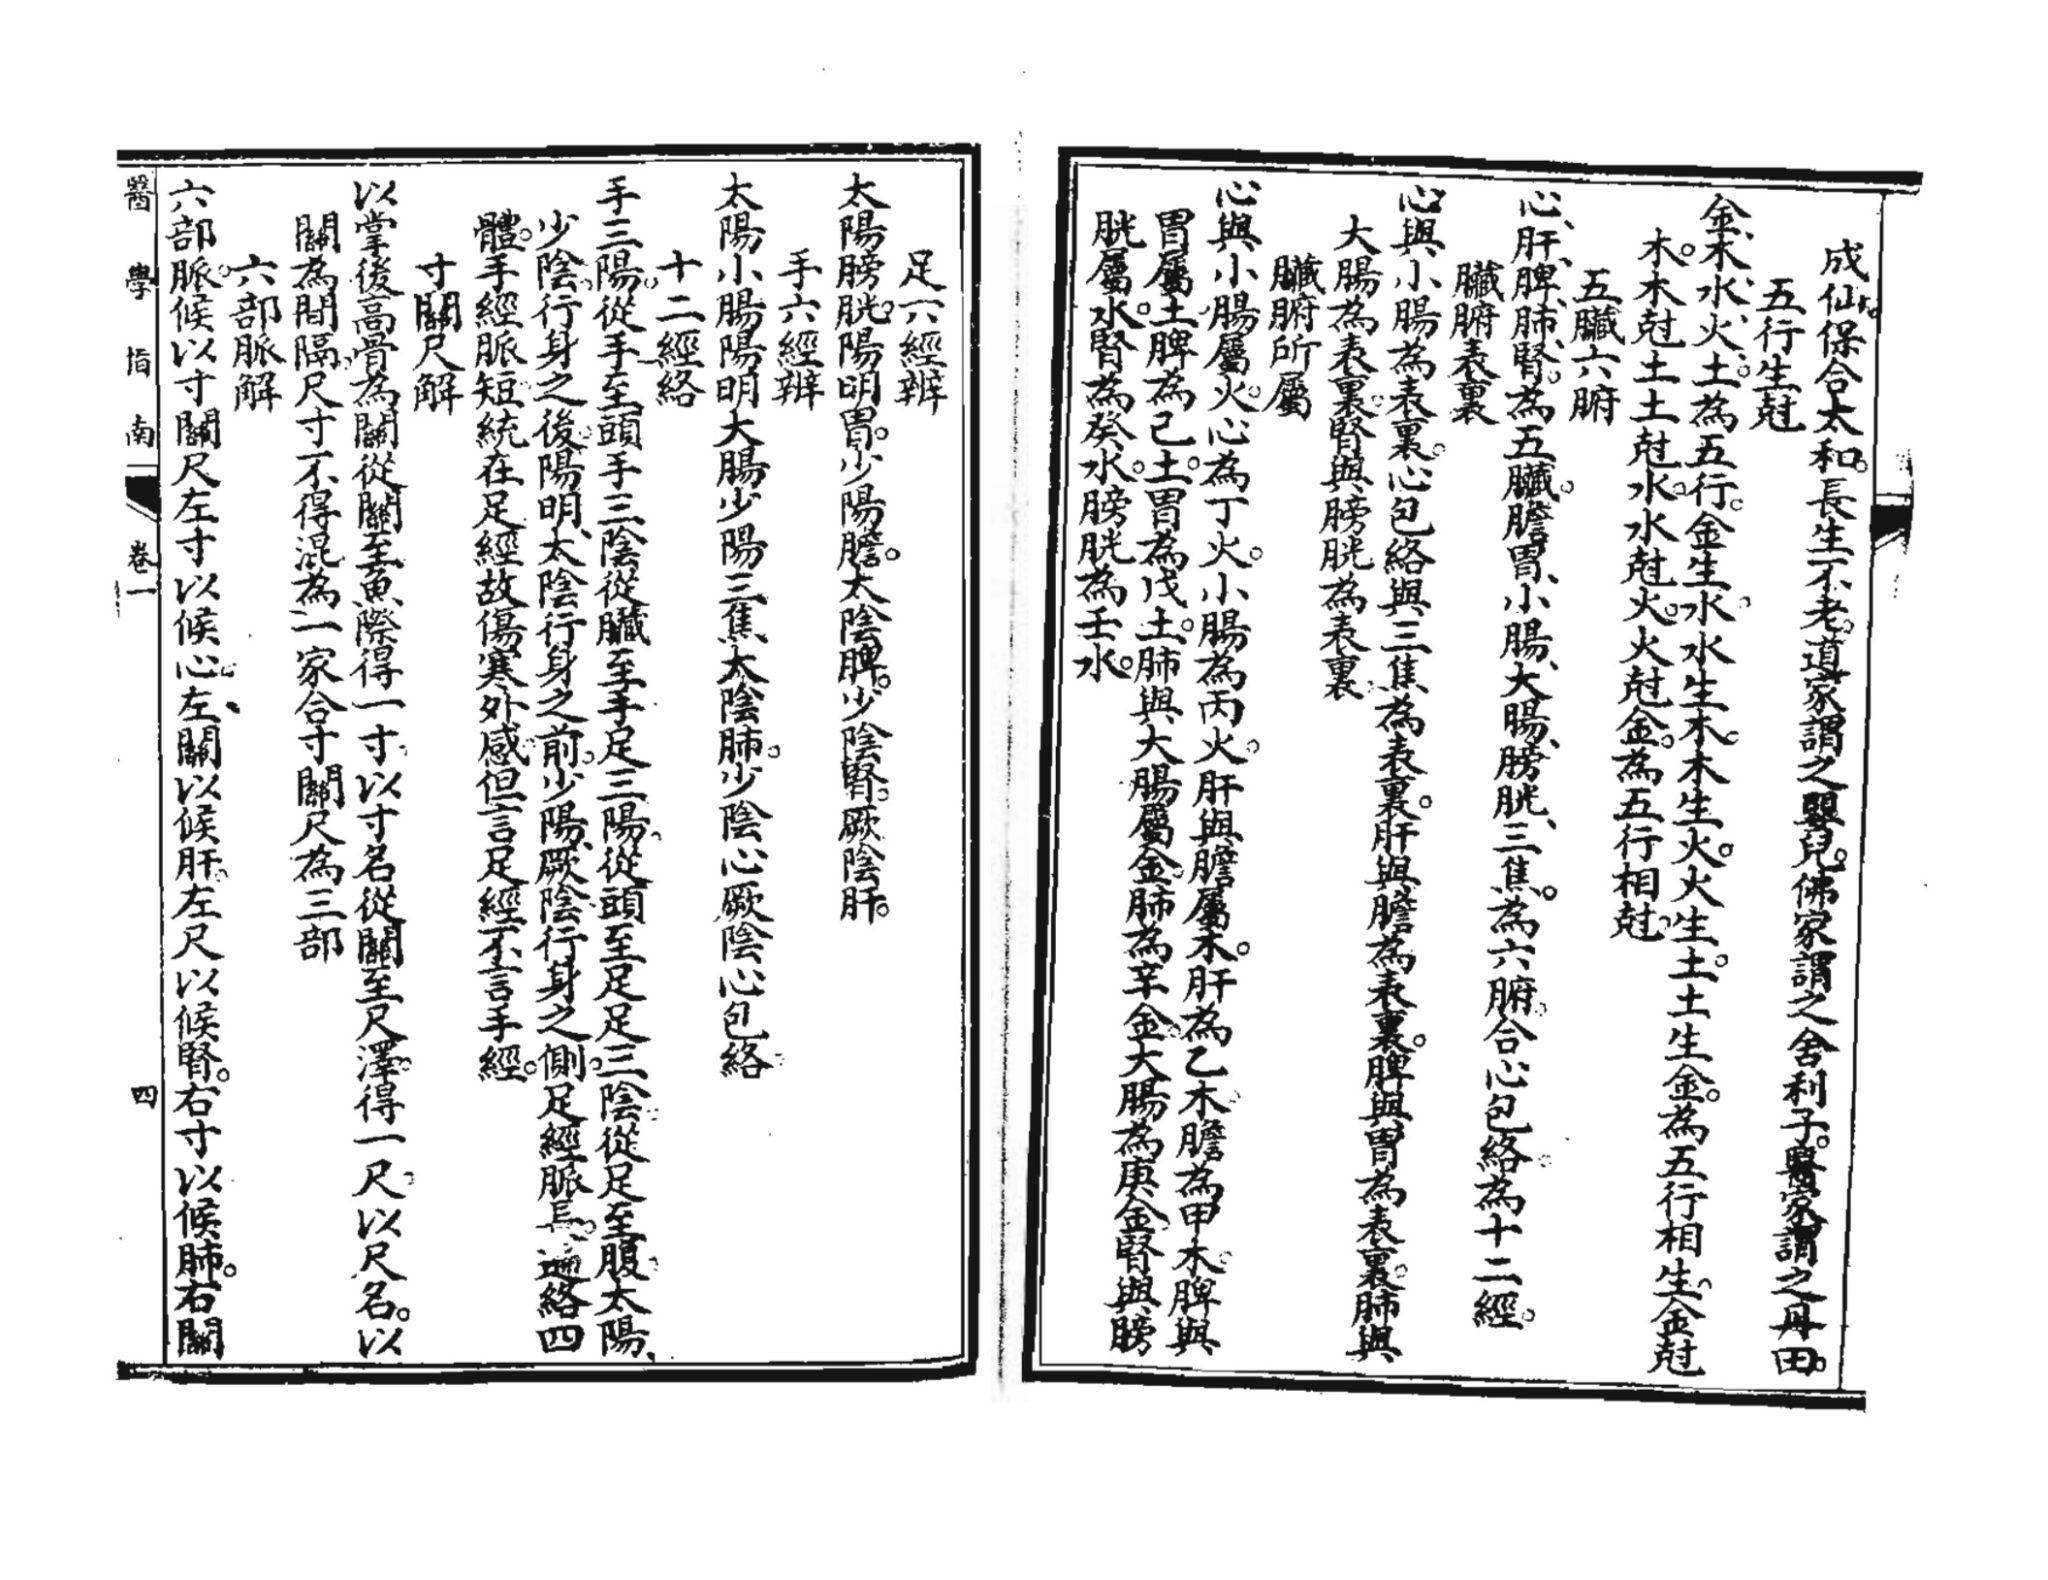 成仙。保合太和。長生不老。道家謂之嬰兒。佛家謂之舍利子。醫家謂之丹田。
五行生尅
金、木、水、火、土、為五行。金生水。水生木。木生火。火生土。土生金。為五行相生。金尅
木。木尅土。土尅水。水尅火。火尅金。為五行相尅。
五臟六腑
心、肝、脾、肺、腎。為五臟。膽、胃、小腸、大腸、膀胱、三焦。為六腑。合心包絡。為十二經。
臟腑表裏
心與小腸為表裏。心包絡與三焦為表裏。肝與膽為表裏。脾與胃為表裏。肺與
大腸為表裏。腎與膀胱為表裏
臟腑所屬
心與小腸屬火。心為丁火。小腸為丙火。肝與膽屬木。肝為乙木。膽為甲木。脾與
胃屬土。脾為己土。胃為戊土。肺與大腸屬金。肺為辛金。大腸為庚金。腎與膀
胱屬水。腎為癸水。膀胱為壬水。
足六經辨
太陽膀胱。陽明胃。少陽膽。太陰脾。少陰腎。厥陰肝。
手六經辨
太陽小腸陽明大腸少陽三焦太陰肺。少陰心厥陰心包絡
十二經絡
手三陽。從手至頭手三陰從臟至手足三陽。從頭至足足三陰從足至腹。太陽、
少陰。行身之後。陽明、太陰行身之前。少陽、厥陰行身之側。足經脈長。遍絡四
體。手經脈短。統在足經故傷寒外感。但言足經不言手經。
寸關尺解
以掌後高骨為關從關至魚際得一寸。以寸名從關至尺澤。得一尺。以尺名。以
關為間隔。尺寸不得混為一家合寸關尺為三部
六部脈解
六部脈。候以寸關尺左寸以候心。左關以候肝。左尺以候腎。右寸以候肺。右關
醫學指南 卷一 四